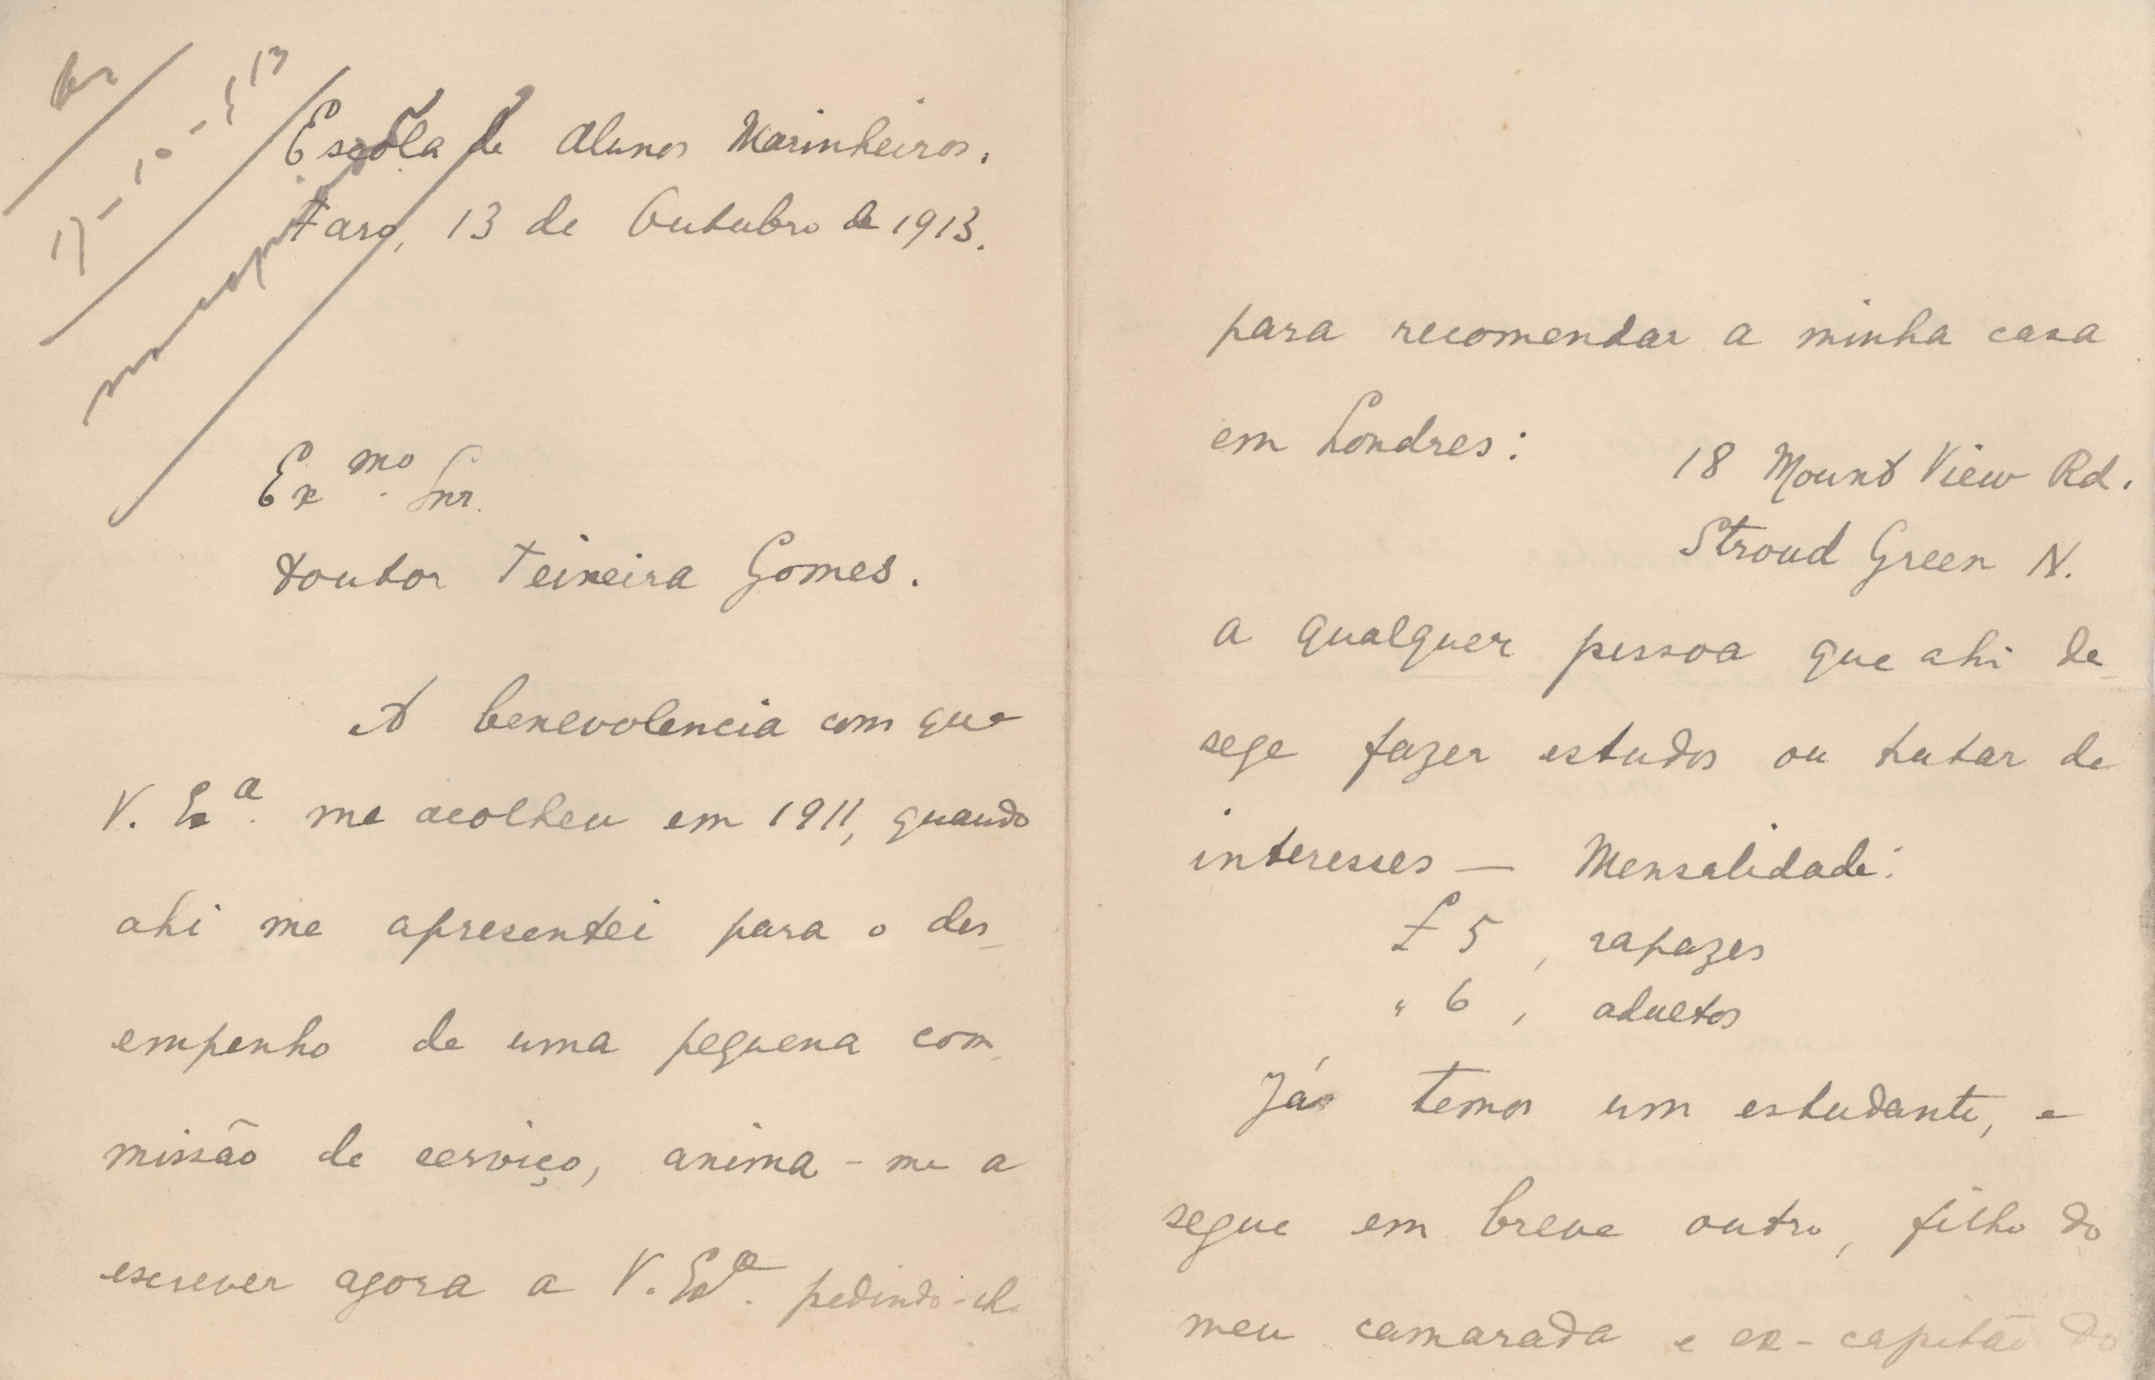 17-10-913
Escola de Alunos Marinheiros.
Faro, 13 de Outubro de 1913.
Ex mo. Snr.
Doutor Teixeira Gomes.
A benevolencia com que
V. Exa. me acolheu em 1911, quando
ahi me apresentei para o des-
empenho de uma pequena com-
missão de serviço, anima-me a
escrever agora a V. Exa. pedindo-lhe
para recomendar a minha casa
em Londres:
18 Mount View Rd.
Stroud Green N.
a qualquer pessoa que ahi de-
sege fazer estudos ou tratar de
interesses — Mensalidade:
£ 5, rapazes
" 6, adultos
Já temos um estudante, e
segue em breve outro, filho do
meu camarada e ex-capitão do